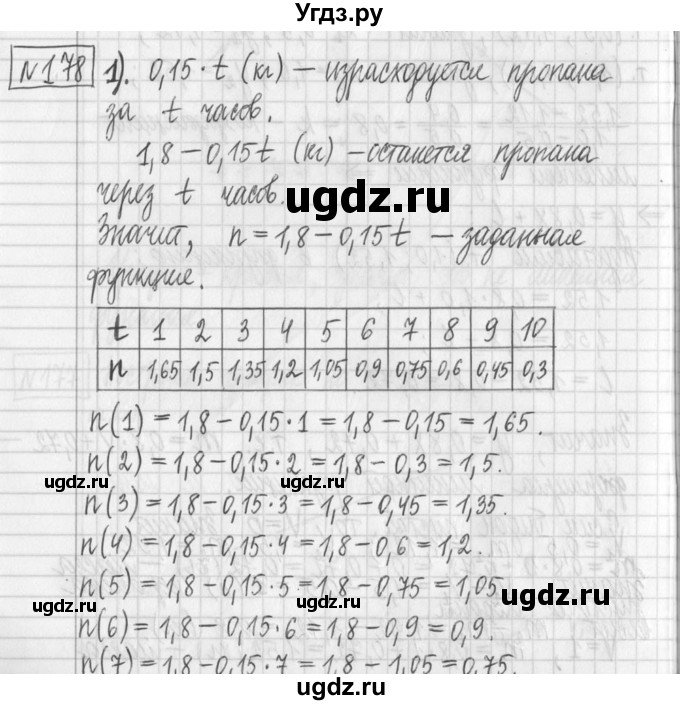 Угдз.ру
№178 1). 0,15·t (кг) – израсходуется пропана
за t часов.
1,8–0,15t (кг) – останется пропана
через t часов.
ugdz.ru
Значит, n = 1,8–0,15t – заданная
функция.
t 1 2 3 4 5 6 7 8 9 10
n 1,65 1,5 1,35 1,2 1,05 0,9 0,75 0,6 0,45 0,3
n(1) = 1,8–0,15·1 = 1,8–0,15 = 1,65.
n(2) = 1,8–0,15·2 = 1,8–0,3 = 1,5.
ugdz.ru ugdz.ru
n(3) = 1,8–0,15·3 = 1,8–0,45 = 1,35.
n(4) = 1,8–0,15·4 = 1,8–0,6 = 1,2.
n(5) = 1,8–0,15·5 = 1,8–0,75 = 1,05
ugdz.ru ugdz.ru ugdz.ru
n(6) = 1,8–0,15·6 = 1,8–0,9 = 0,9.
n(7) = 1,8–0,15·7 = 1,8–1,05 = 0,75.
ugdz.ru